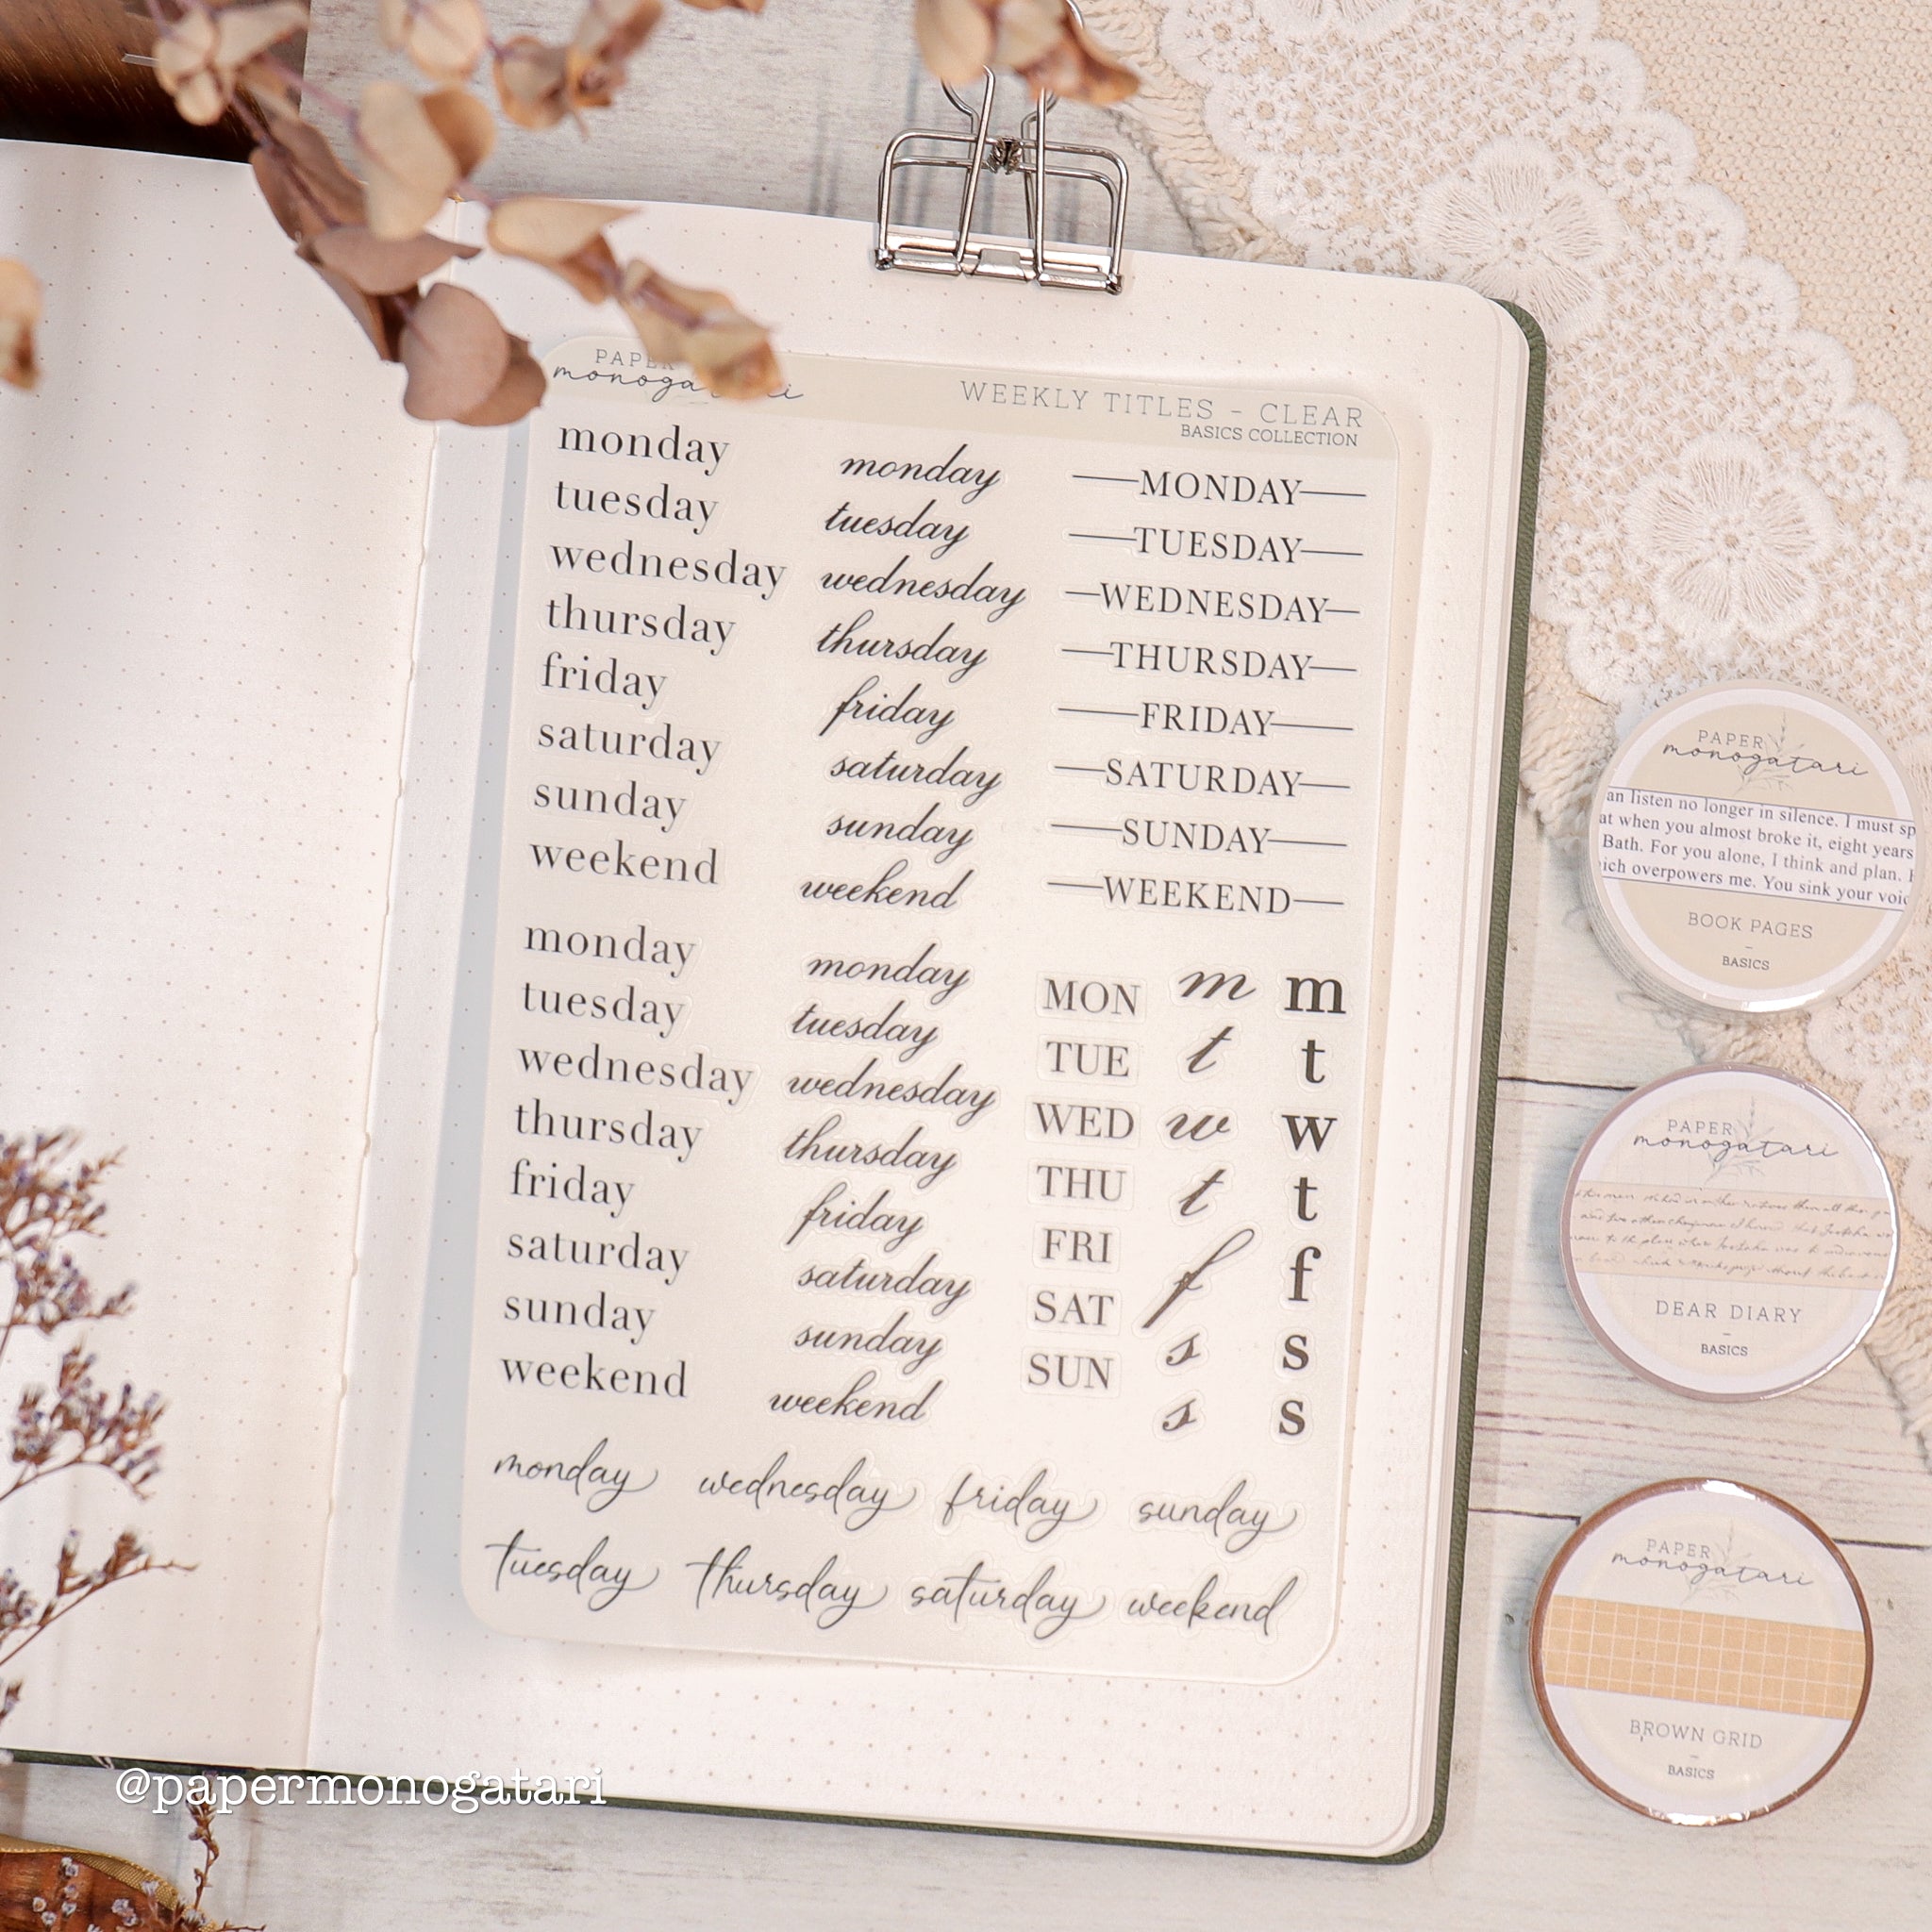 PAPER
monogatari
WEEKLY TITLES - CLEAR
BASICS COLLECTION
monday
tuesday
wednesday
thursday
friday
saturday
sunday
weekend
monday
tuesday
wednesday
thursday
friday
saturday
sunday
weekend
MONDAY
TUESDAY
WEDNESDAY
THURSDAY
FRIDAY
SATURDAY
SUNDAY
WEEKEND
monday
tuesday
wednesday
thursday
friday
saturday
sunday
weekend
monday
tuesday
wednesday
thursday
friday
saturday
sunday
weekend
MON
TUE
WED
THU
FRI
SAT
SUN
m
t
w
t
f
s
s
m
t
w
t
f
s
s
monday wednesday friday sunday
tuesday thursday saturday weekend
PAPER
monogatari
an listen no longer in silence. I must sp
at when you almost broke it, eight years
Bath. For you alone, I think and plan.
ich overpowers me. You sink your voic
BOOK PAGES
-
BASICS
PAPER
monogatari
DEAR DIARY
-
BASICS
PAPER
monogatari
BROWN GRID
-
BASICS
@papermonogatari